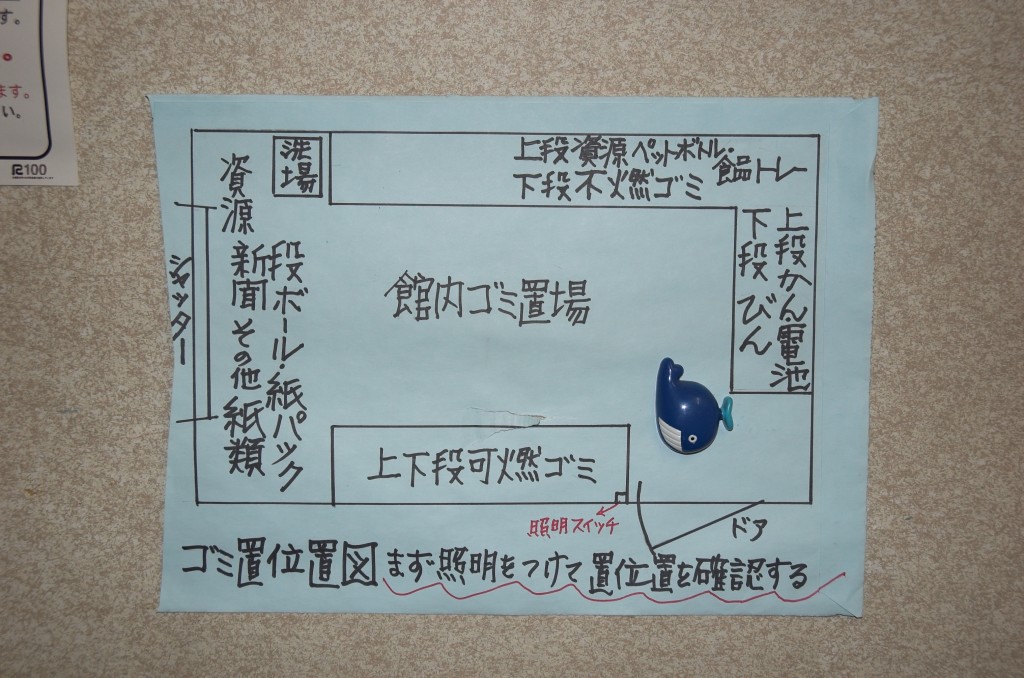 す。
。
ます。
い。
R100
洗場
資源
段ボール・紙パック
新聞 その他 紙類
シャッター
上段 資源 ペットボトル・食品トレー
下段 不燃ゴミ
上段 かん 電池
下段 びん
館内ゴミ置場
上下段可燃ゴミ
照明スイッチ
ドア
ゴミ置位置図 まず照明をつけて置位置を確認する